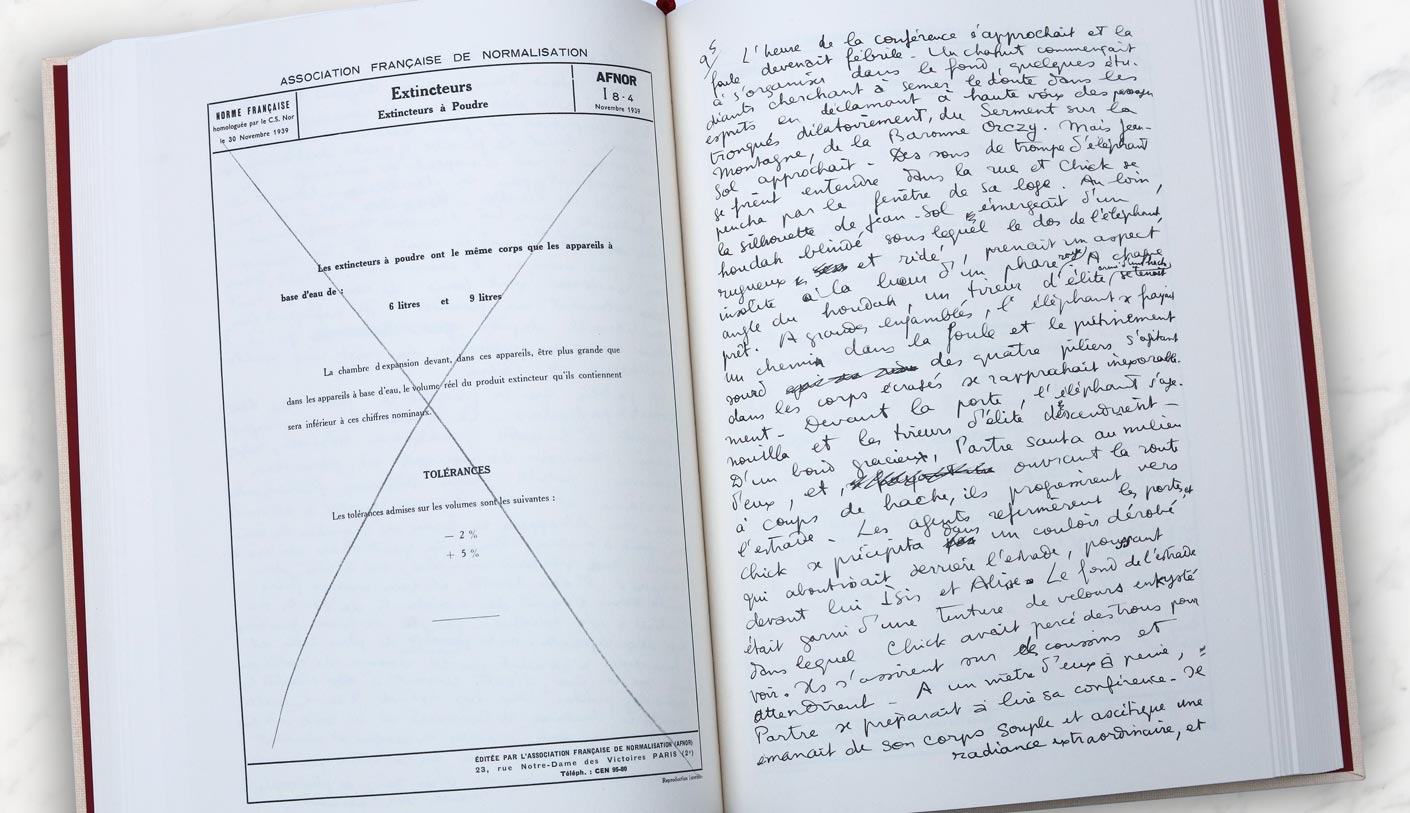 ASSOCIATION FRANÇAISE DE NORMALISATION
NORME FRANÇAISE
homologuée par le C.S. Nor
le 30 Novembre 1939
Extincteurs
Extincteurs à Poudre
AFNOR
I 8-4
Novembre 1939
Les extincteurs à poudre ont le même corps que les appareils à
base d'eau de :
6 litres et 9 litres
La chambre d'expansion devant, dans ces appareils, être plus grande que
dans les appareils à base d'eau, le volume réel du produit extincteur qu'ils contiennent
sera inférieur à ces chiffres nominaux.
TOLÉRANCES
Les tolérances admises sur les volumes sont les suivantes :
— 2 %
+ 5 %
ÉDITÉE PAR L'ASSOCIATION FRANÇAISE DE NORMALISATION (AFNOR)
23, rue Notre-Dame des Victoires PARIS (2e)
Téléph. : CEN 95-80
Reproduction interdite
L'heure de la conférence s'approchait et la
foule devenait fébrile. Un chahut commençait
à s'organiser dans le fond, quelques étu-
diants cherchant à semer le doute dans les
esprits en déclamant à haute voix des passages
tronqués dilatoirement, du Serment sur la
Montagne, de la Baronne Orczy. Mais Jean-
Sol approchait. Des sons de trompe d'éléphant
se firent entendre dans la rue et Chick se
pencha par la fenêtre de sa loge. Au loin,
la silhouette de Jean-Sol émergeait d'un
houdah blindé sous lequel le dos de l'éléphant,
rugueux et ridé, prenait un aspect
insolite à la lueur d'un phare rouge. A chaque
angle du houdah, un tireur d'élite, armé d'une hache, se tenait
prêt. A grandes enjambées, l'éléphant se frayait
un chemin dans la foule et le piétinement
sourd des quatre piliers s'agitant
dans les corps écrasés se rapprochait inexorable-
ment. Devant la porte, l'éléphant s'age-
nouilla et les tireurs d'élite descendirent -
D'un bond gracieux, Partre sauta au milieu
d'eux, et, ouvrant la route
à coups de hache, ils progressèrent vers
l'estrade. Les agents refermèrent les portes, et
Chick se précipita dans un couloir dérobé
qui aboutissait derrière l'estrade, poussant
devant lui Isis et Alise. Le fond de l'estrade
était garni d'une tenture de velours enkysté
dans lequel Chick avait percé des trous pour
voir. Ils s'assirent sur des coussins et
attendirent - A un mètre d'eux à peine,
Partre se préparait à lire sa conférence. Il
émanait de son corps souple et ascétique une
radiance extraordinaire, et